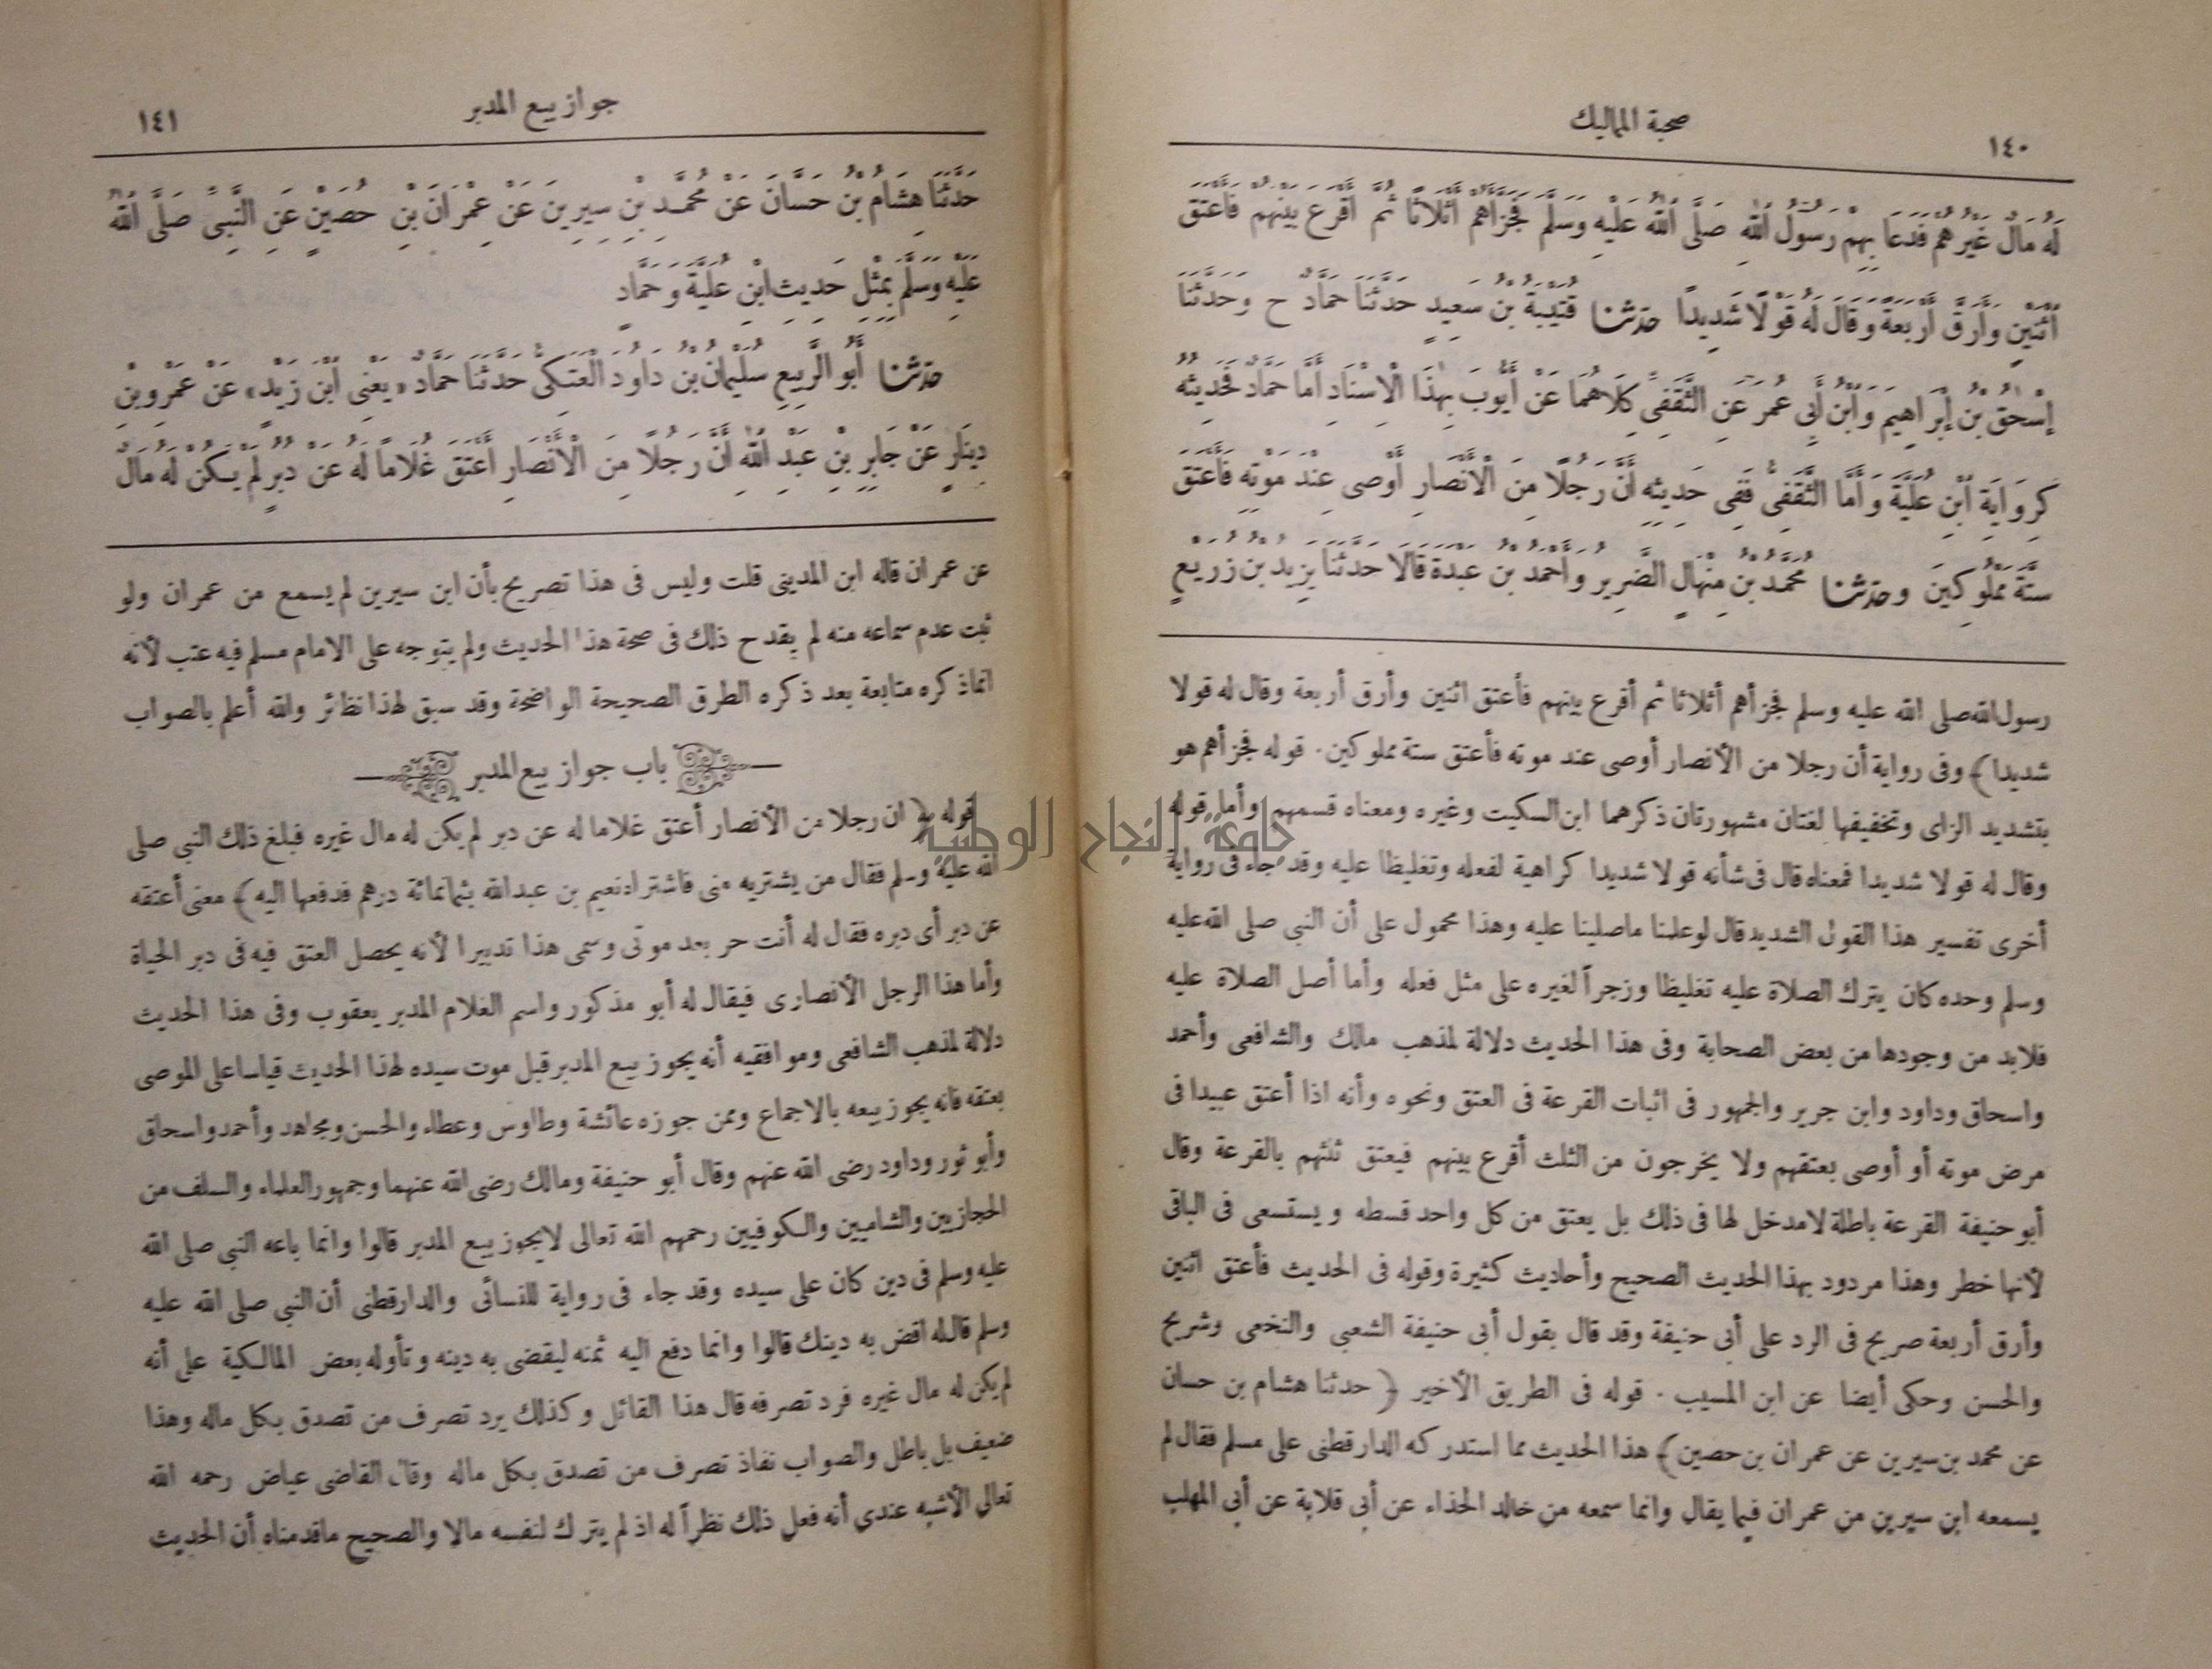 صحبة المماليك
١٤٠
لَهُ مَالٌ غَيْرُهُمْ فَدَعَا بِهِمْ رَسُولُ اللهِ صَلَّى اللهُ عَلَيْهِ وَسَلَّمَ فَجَزَّأَهُمْ أَثْلَاثًا ثُمَّ أَقْرَعَ بَيْنَهُمْ فَأَعْتَقَ
اثْنَيْنِ وَأَرَقَّ أَرْبَعَةً وَقَالَ لَهُ قَوْلًا شَدِيدًا حدثنا قُتَيْبَةُ بْنُ سَعِيدٍ حَدَّثَنَا حَمَّادٌ ح وَحَدَّثَنَا
إِسْحٰقُ بْنُ إِبْرَاهِيمَ وَابْنُ أَبِي عُمَرَ عَنِ الثَّقَفِيِّ كِلَاهُمَا عَنْ أَيُّوبَ بِهٰذَا الْإِسْنَادِ أَمَّا حَمَّادٌ فَحَدِيثُهُ
كَرِوَايَةِ ابْنِ عُلَيَّةَ وَأَمَّا الثَّقَفِيُّ فَفِي حَدِيثِهِ أَنَّ رَجُلًا مِنَ الْأَنْصَارِ أَوْصَى عِنْدَ مَوْتِهِ فَأَعْتَقَ
سِتَّةَ مَمْلُوكِينَ وحدثنا مُحَمَّدُ بْنُ مِنْهَالٍ الضَّرِيرُ وَأَحْمَدُ بْنُ عَبْدَةَ قَالَا حَدَّثَنَا يَزِيدُ بْنُ زُرَيْعٍ
رسول الله صلى الله عليه وسلم فجزأهم أثلاثا ثم أقرع بينهم فأعتق اثنين وأرق أربعة وقال له قولا
شديدا﴾ وفى رواية أن رجلا من الأنصار أوصى عند موته فأعتق ستة مملوكين. قوله فجزأهم هو
بتشديد الزاى وتخفيفها لغتان مشهورتان ذكرهما ابن السكيت وغيره ومعناه قسمهم وأما قوله
وقال له قولا شديدا فمعناه قال فى شأنه قولا شديدا كراهية لفعله وتغليظا عليه وقد جاء فى رواية
أخرى تفسير هذا القول الشديد قال لو علمنا ماصلينا عليه وهذا محمول على أن النبى صلى الله عليه
وسلم وحده كان يترك الصلاة عليه تغليظا وزجرا لغيره على مثل فعله وأما أصل الصلاة عليه
فلابد من وجودها من بعض الصحابة وفى هذا الحديث دلالة لمذهب مالك والشافعى وأحمد
واسحاق وداود وابن جرير والجمهور فى اثبات القرعة فى العتق ونحوه وأنه اذا أعتق عبيدا فى
مرض موته أو أوصى بعتقهم ولا يخرجون من الثلث أقرع بينهم فيعتق ثلثهم بالقرعة وقال
أبو حنيفة القرعة باطلة لامدخل لها فى ذلك بل يعتق من كل واحد قسطه ويستسعى فى الباقى
لأنها خطر وهذا مردود بهذا الحديث الصحيح وأحاديث كثيرة وقوله فى الحديث فأعتق اثنين
وأرق أربعة صريح فى الرد على أبى حنيفة وقد قال بقول أبى حنيفة الشعبى والنخعى وشريح
والحسن وحكى أيضا عن ابن المسيب . قوله فى الطريق الأخير ﴿حدثنا هشام بن حسان
عن محمد بن سيرين عن عمران بن حصين﴾ هذا الحديث مما استدركه الدارقطنى على مسلم فقال لم
يسمعه ابن سيرين من عمران فيما يقال وانما سمعه من خالد الحذاء عن أبى قلابة عن أبى المهلب
جواز بيع المدبر
١٤١
حَدَّثَنَا هِشَامُ بْنُ حَسَّانَ عَنْ مُحَمَّدِ بْنِ سِيرِينَ عَنْ عِمْرَانَ بْنِ حُصَيْنٍ عَنِ النَّبِيِّ صَلَّى اللهُ
عَلَيْهِ وَسَلَّمَ بِمِثْلِ حَدِيثِ ابْنِ عُلَيَّةَ وَحَمَّادٍ
حدثنا أَبُو الرَّبِيعِ سُلَيْمَانُ بْنُ دَاوُدَ الْعَتَكِيُّ حَدَّثَنَا حَمَّادٌ «يَعْنِي ابْنَ زَيْدٍ» عَنْ عَمْرِو بْنِ
دِينَارٍ عَنْ جَابِرِ بْنِ عَبْدِ اللهِ أَنَّ رَجُلًا مِنَ الْأَنْصَارِ أَعْتَقَ غُلَامًا لَهُ عَنْ دُبُرٍ لَمْ يَكُنْ لَهُ مَالٌ
عن عمران قاله ابن المدينى قلت وليس فى هذا تصريح بأن ابن سيرين لم يسمع من عمران ولو
ثبت عدم سماعه منه لم يقدح ذلك فى صحة هذا الحديث ولم يتوجه على الامام مسلم فيه عتب لأنه
انما ذكره متابعة بعد ذكره الطرق الصحيحة الواضحة وقد سبق لهذا نظائر والله أعلم بالصواب
باب جواز بيع المدبر
قوله ﴿ان رجلا من الأنصار أعتق غلاما له عن دبر لم يكن له مال غيره فبلغ ذلك النبى صلى
الله عليه وسلم فقال من يشتريه منى فاشتراه نعيم بن عبد الله بثمانمائة درهم فدفعها اليه﴾ معنى أعتقه
عن دبر أى دبره فقال له أنت حر بعد موتى وسمى هذا تدبيرا لأنه يحصل العتق فيه فى دبر الحياة
وأما هذا الرجل الأنصارى فيقال له أبو مذكور واسم الغلام المدبر يعقوب وفى هذا الحديث
دلالة لمذهب الشافعى وموافقيه أنه يجوز بيع المدبر قبل موت سيده لهذا الحديث قياسا على الموصى
بعتقه فانه يجوز بيعه بالاجماع وممن جوزه عائشة وطاوس وعطاء والحسن ومجاهد وأحمد واسحاق
وأبو ثور وداود رضى الله عنهم وقال أبو حنيفة ومالك رضى الله عنهما وجمهور العلماء والسلف من
الحجازيين والشاميين والكوفيين رحمهم الله تعالى لايجوز بيع المدبر قالوا وانما باعه النبى صلى الله
عليه وسلم فى دين كان على سيده وقد جاء فى رواية للنسائى والدارقطنى أن النبى صلى الله عليه
وسلم قال له اقض به دينك قالوا وانما دفع اليه ثمنه ليقضى به دينه وتأوله بعض المالكية على أنه
لم يكن له مال غيره فرد تصرفه قال هذا القائل وكذلك يرد تصرف من تصدق بكل ماله وهذا
ضعيف بل باطل والصواب نفاذ تصرف من تصدق بكل ماله وقال القاضى عياض رحمه الله
تعالى الأشبه عندى أنه فعل ذلك نظرا له اذ لم يترك لنفسه مالا والصحيح ماقدمناه أن الحديث
جامعة النجاح الوطنية